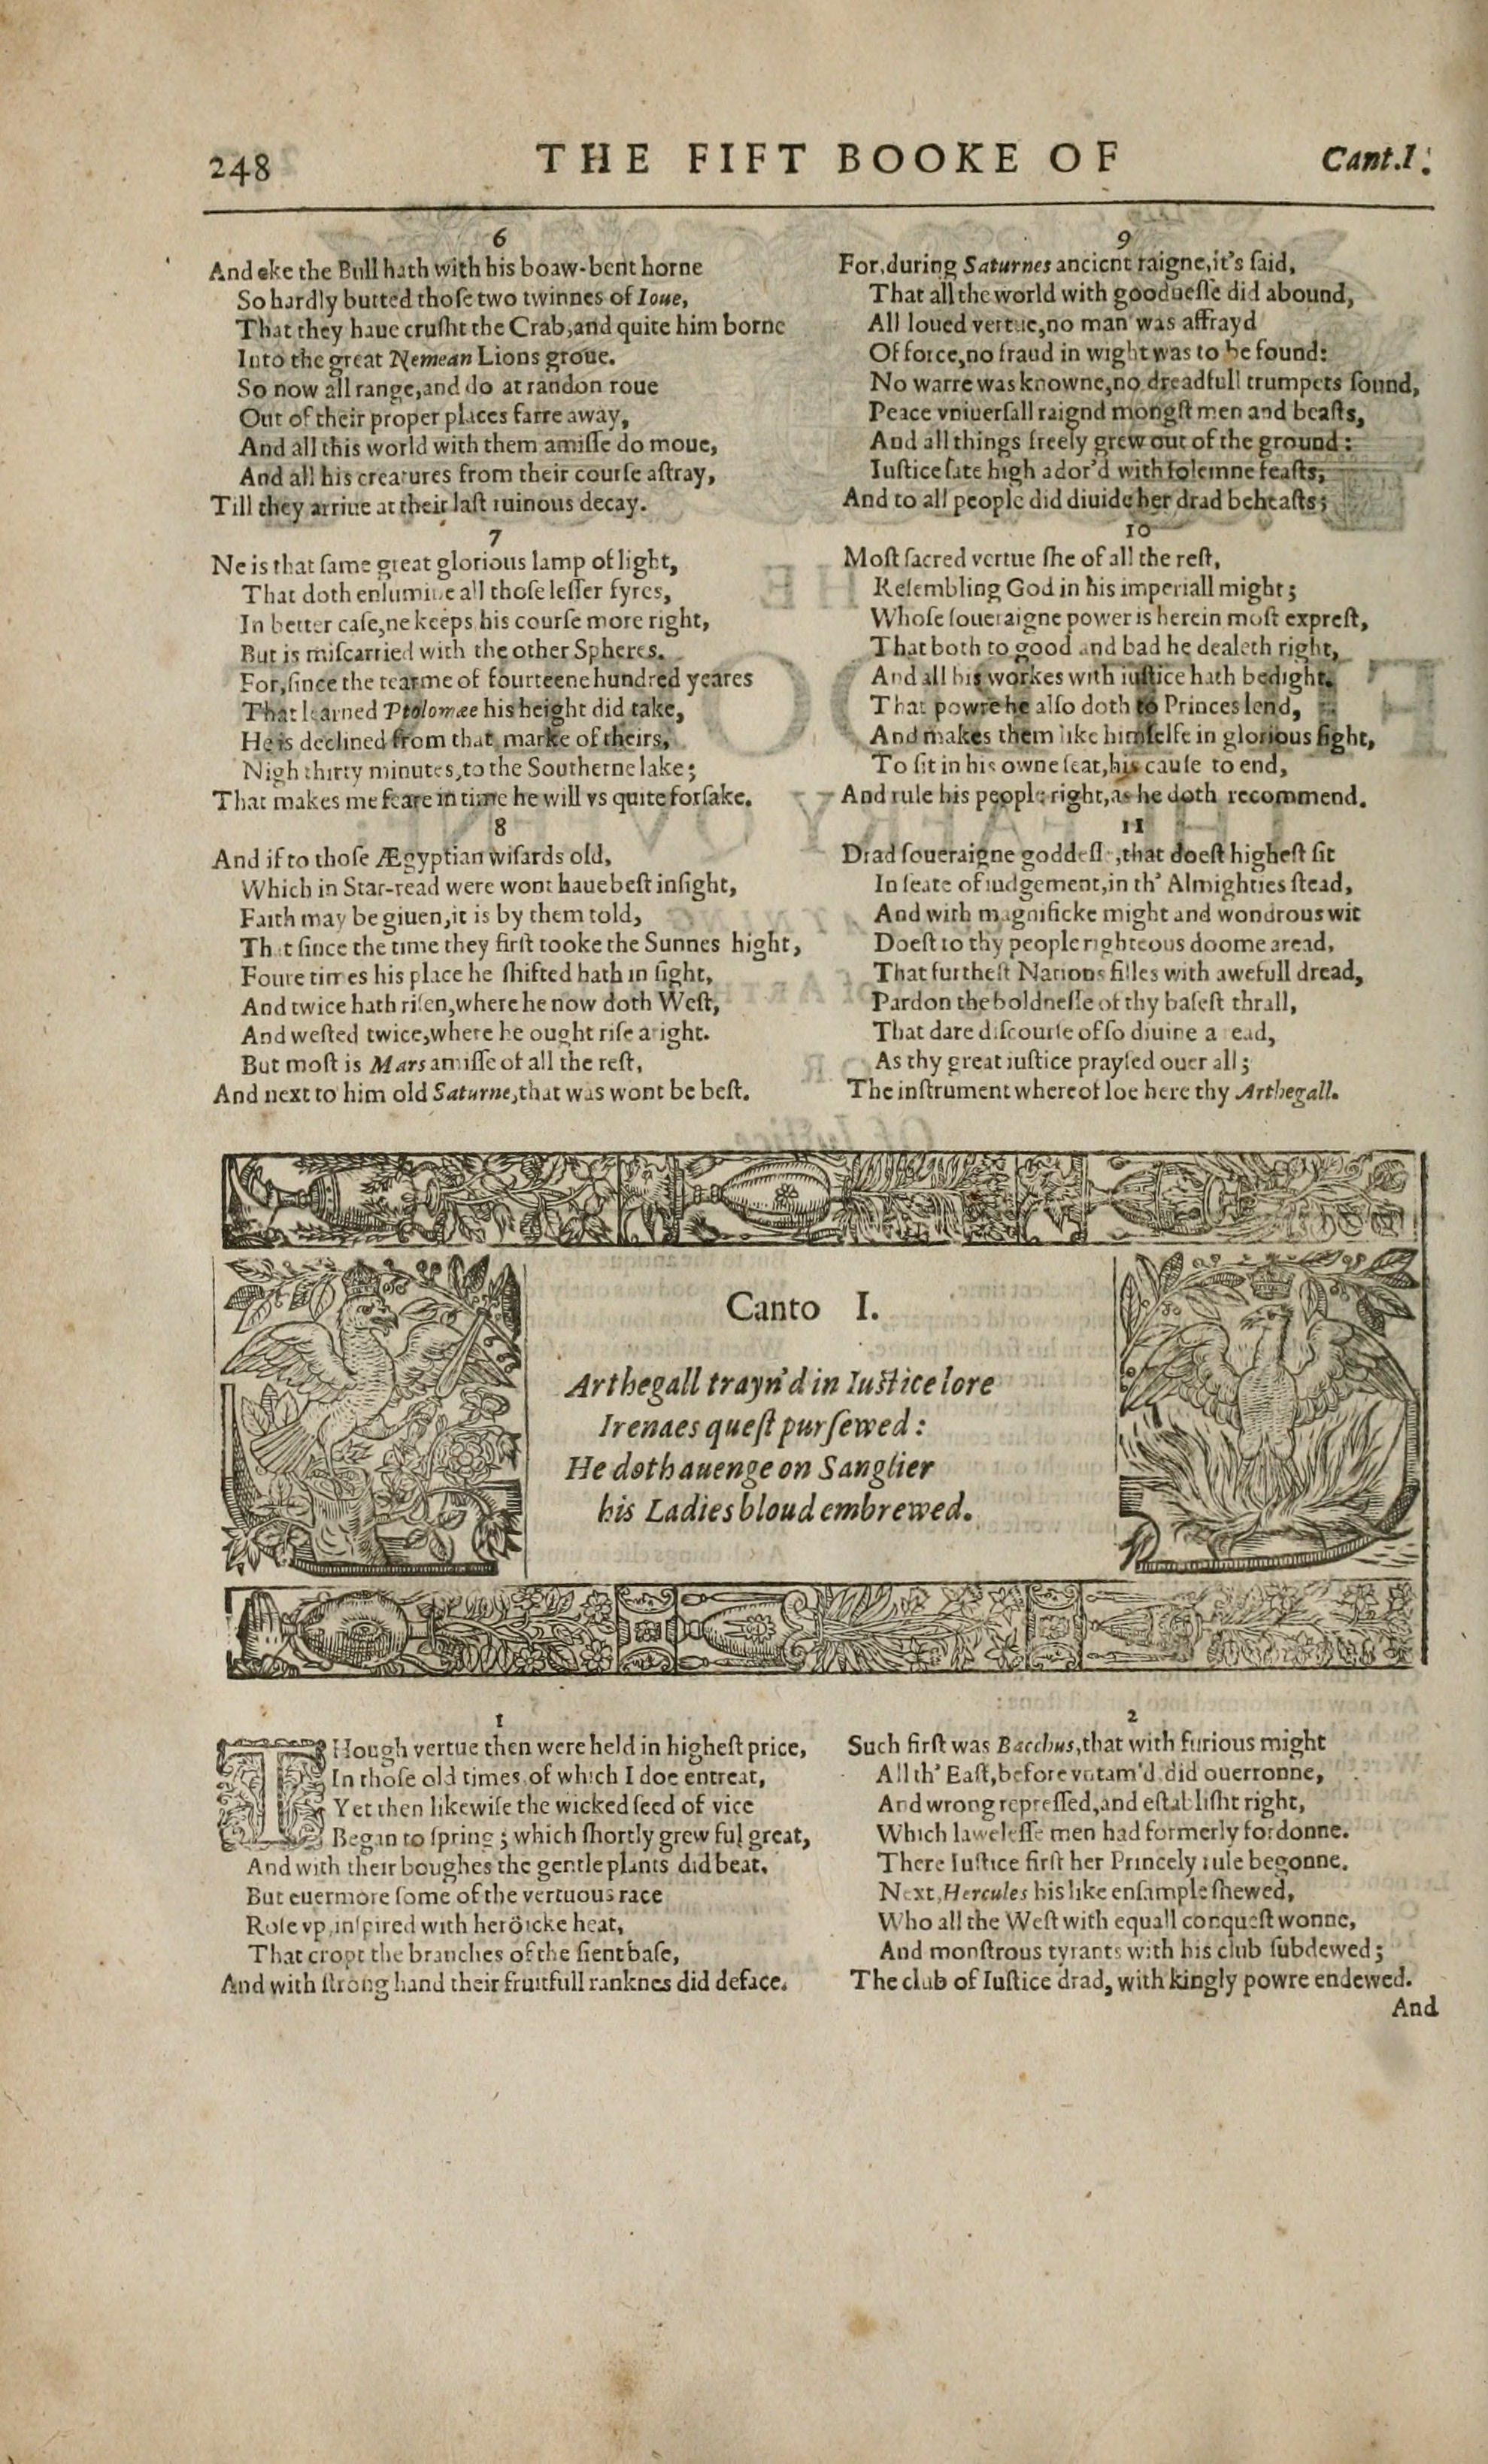 248 THE FIFT BOOKE OF Cant.I.
6
And eke the Bull hath with his boaw-bent horne
So hardly butted thoſe two twinnes of Ioue,
That they haue cruſht the Crab, and quite him borne
Into the great Nemean Lions groue.
So now all range, and do at randon roue
Out of their proper places farre away,
And all this world with them amiſſe do moue,
And all his creatures from their courſe aſtray,
Till they arriue at their laſt ruinous decay.
7
Ne is that ſame great glorious lamp of light,
That doth enlumine all thoſe leſſer fyres,
In better caſe, ne keeps his courſe more right,
But is miſcarried with the other Spheres.
For, ſince the tearme of fourteene hundred yeares
That learned Ptolomæe his height did take,
He is declined from that marke of theirs,
Nigh thirty minutes, to the Southerne lake;
That makes me feare in time he will vs quite forſake.
8
And if to thoſe Ægyptian wiſards old,
Which in Star-read were wont haue beſt inſight,
Faith may be giuen, it is by them told,
That ſince the time they firſt tooke the Sunnes hight,
Foure times his place he ſhifted hath in ſight,
And twice hath riſen, where he now doth Weſt,
And weſted twice, where he ought riſe aright.
But moſt is Mars amiſſe of all the reſt,
And next to him old Saturne, that was wont be beſt.
9
For, during Saturnes ancient raigne, it's ſaid,
That all the world with goodneſſe did abound,
All loued vertue, no man was affrayd
Of force, no fraud in wight was to be found:
No warre was knowne, no dreadfull trumpets ſound,
Peace vniuerſall raignd mongſt men and beaſts,
And all things freely grew out of the ground:
Iuſtice ſate high ador'd with ſolemne feaſts,
And to all people did diuide her drad beheaſts;
10
Moſt ſacred vertue ſhe of all the reſt,
Reſembling God in his imperiall might;
Whoſe ſoueraigne power is herein moſt expreſt,
That both to good and bad he dealeth right,
And all his workes with iuſtice hath bedight.
That powre he alſo doth to Princes lend,
And makes them like himſelfe in glorious ſight,
To ſit in his owne ſeat, his cauſe to end,
And rule his people right, as he doth recommend.
11
Drad ſoueraigne goddeſſe, that doeſt higheſt ſit
In ſeate of iudgement, in th' Almighties ſtead,
And with magnificke might and wondrous wit
Doeſt to thy people righteous doome aread,
That furtheſt Nations filles with awefull dread,
Pardon the boldneſſe of thy baſeſt thrall,
That dare diſcourſe of ſo diuine a read,
As thy great iuſtice prayſed ouer all;
The inſtrument whereof loe here thy Arthegall.
Canto I.
Arthegall trayn'd in Iuſtice lore
Irenaes queſt purſewed:
He doth auenge on Sanglier
his Ladies bloud embrewed.
1
THough vertue then were held in higheſt price,
In thoſe old times of which I doe entreat,
Yet then likewiſe the wicked ſeed of vice
Began to ſpring; which ſhortly grew ful great,
And with their boughes the gentle plants did beat.
But euermore ſome of the vertuous race
Roſe vp, inſpired with heröicke heat,
That cropt the branches of the ſient baſe,
And with ſtrong hand their fruitfull ranknes did deface.
2
Such firſt was Bacchus, that with furious might
All th' Eaſt, before vntam'd did ouerronne,
And wrong repreſſed, and eſtabliſht right,
Which laweleſſe men had formerly fordonne.
There Iuſtice firſt her Princely rule begonne.
Next, Hercules his like enſample ſhewed,
Who all the Weſt with equall conqueſt wonne,
And monſtrous tyrants with his club ſubdewed;
The club of Iuſtice drad, with kingly powre endewed.
And